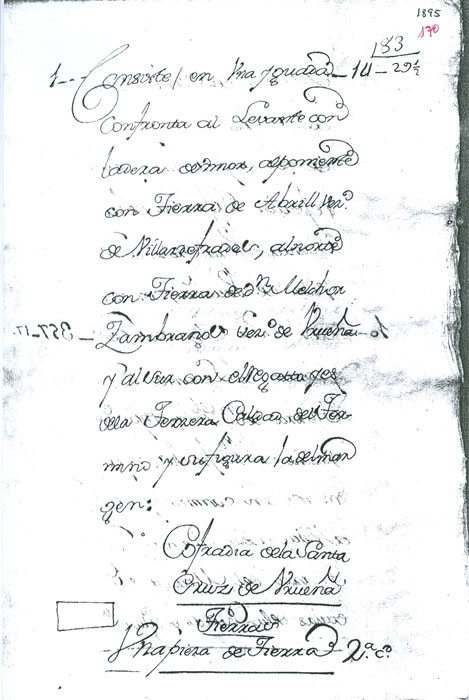 1895
170
183
1 - - Consiste / en Vna yguada - 14 - 29 1/2
Confronta al Levante con
ladera de mor, alponiente
con Tierra de Abrill Vez.º
de Villarrefrades, alnorte
con Tierra de Dn. Melchor
Zambrano Vez.º de Vrueña
y alsur con
dela Tercera Calidad, del Ter-
mino y sufigura la del mar
gen:
Cofradia dela Santa
Cruz de Vrueña
Tierras
Vna pieza de Tierra 2.ª c.